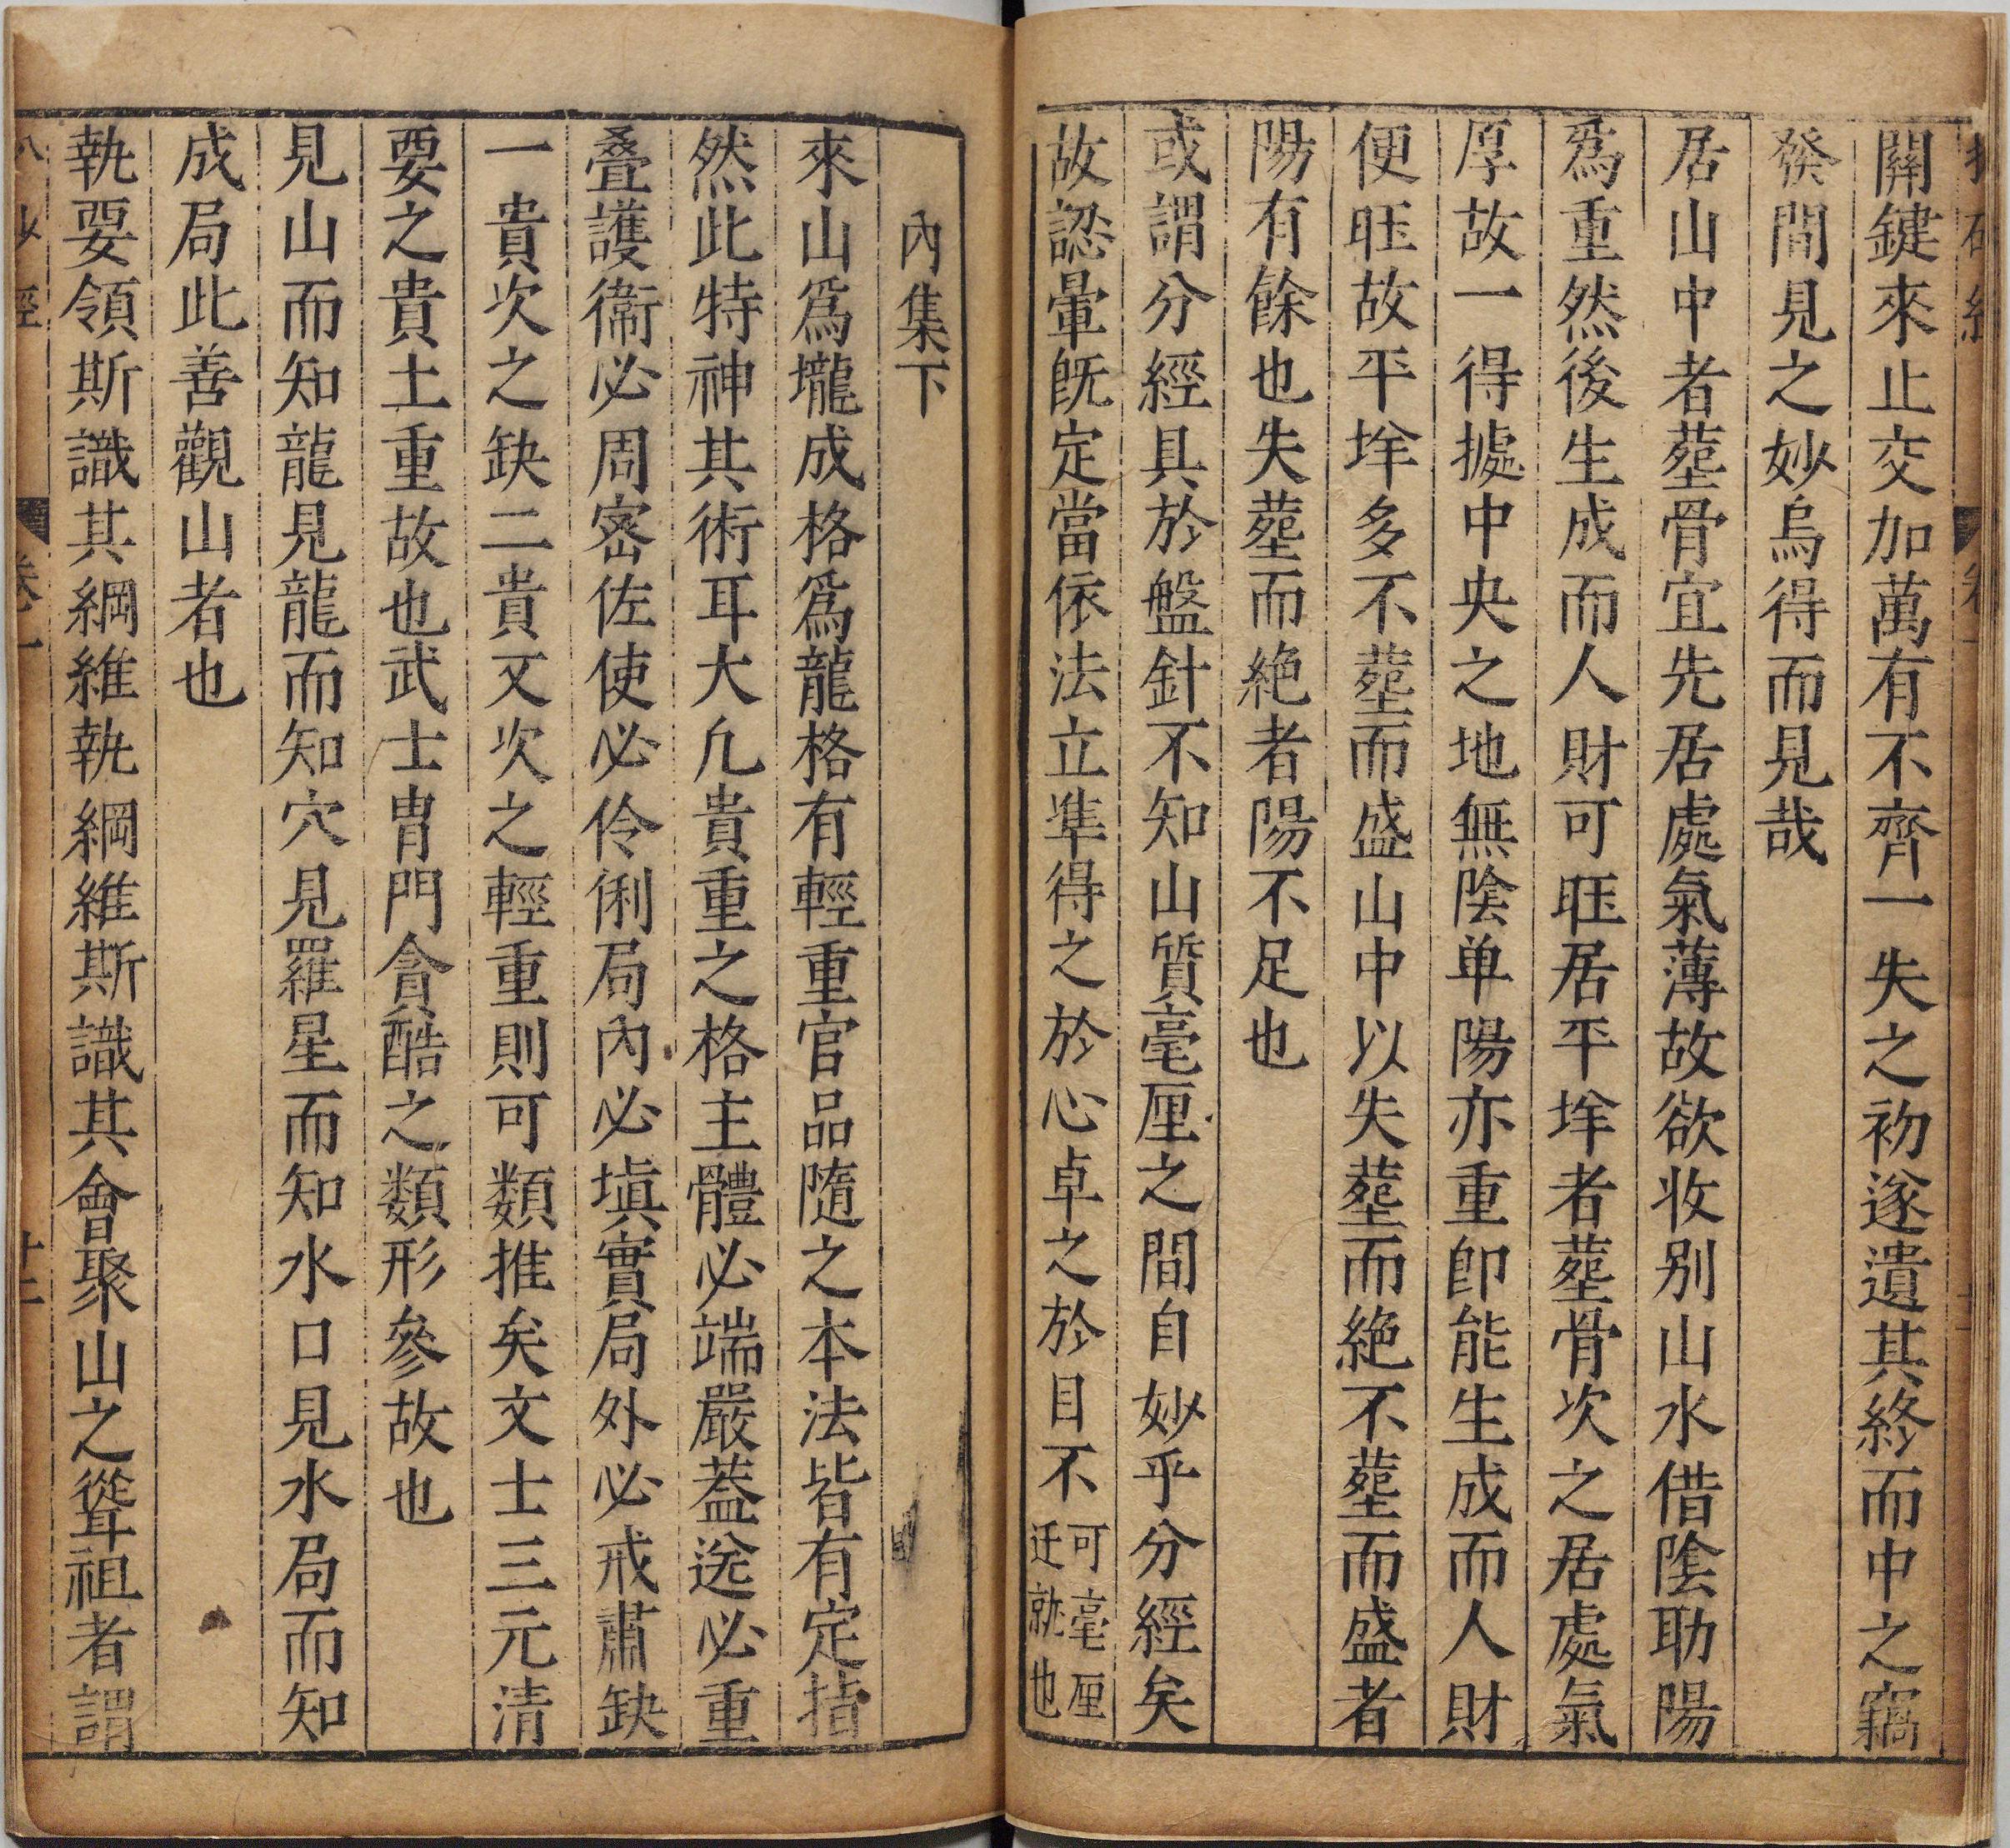 關鍵來止交加萬有不齊一失之初遂遺其終而中之竊
發間見之妙烏得而見哉
居山中者塟骨宜先居處氣薄故欲收别山水借陰助陽
爲重然後生成而人財可旺居平垟者塟骨次之居處氣
厚故一得㨿中央之地無陰单陽亦重卽能生成而人財
便旺故平垟多不塟而盛山中以失塟而絶不塟而盛者
陽有餘也失塟而絶者陽不足也
或謂分經具於盤針不知山質毫厘之間自妙乎分經矣
故認暈旣定當依法立準得之於心卓之於目不可毫厘迁就也
內集下
來山爲壠成格爲龍格有輕重官品隨之本法皆有定㨖
然此特神其術耳大凢貴重之格主體必端嚴葢送必重
叠護衞必周宻佐使必伶俐局內必塡實局外必戒蕭缺
一貴次之缺二貴又次之輕重則可類推矣文士三元清
要之貴土重故也武士胄門貪酷之類形參故也
見山而知龍見龍而知穴見羅星而知水口見水局而知
成局此善觀山者也
執要領斯識其綱維執綱維斯識其會聚山之聳祖者謂
卷一
十二